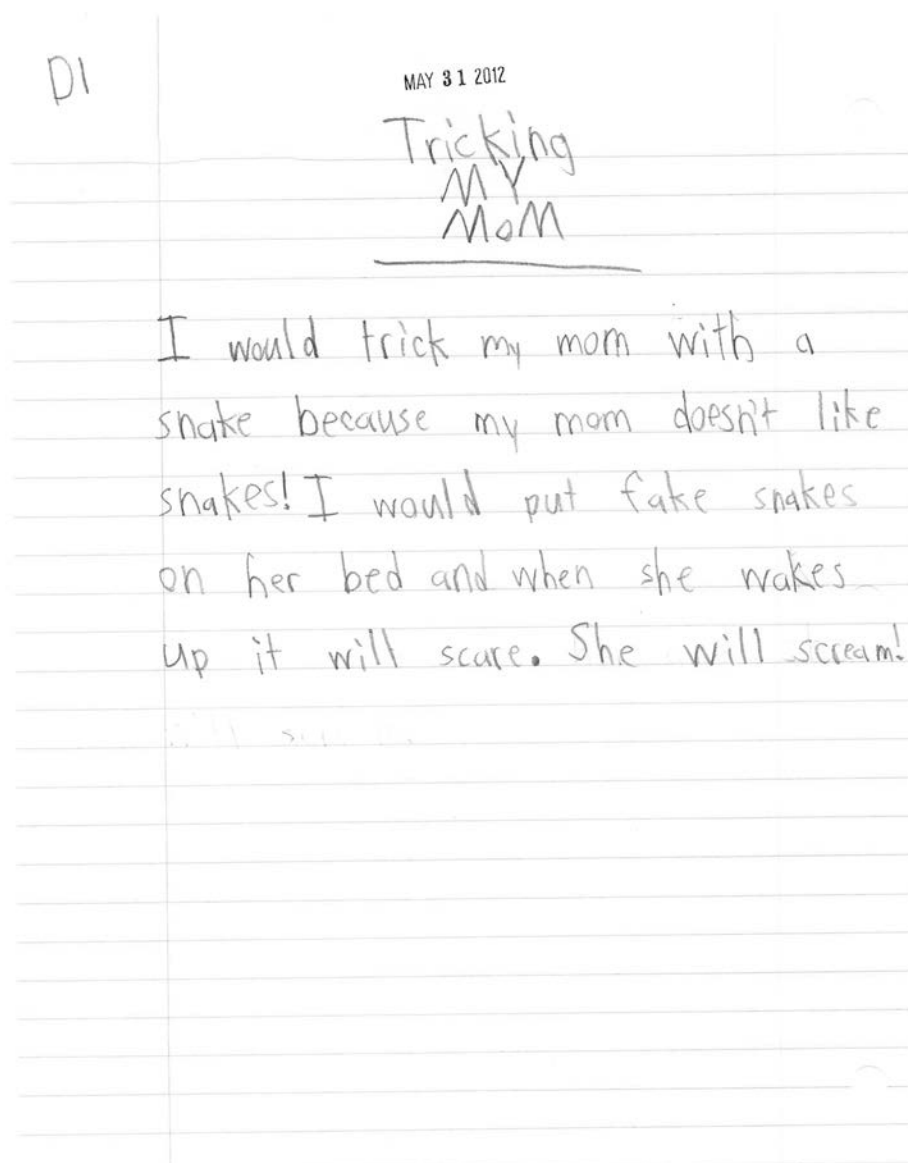 D1
MAY 31 2012
Tricking
MY
MoM
I would trick my mom with a
snake because my mom doesn't like
snakes! I would put fake snakes
on her bed and when she wakes
up it will scare. She will scream!